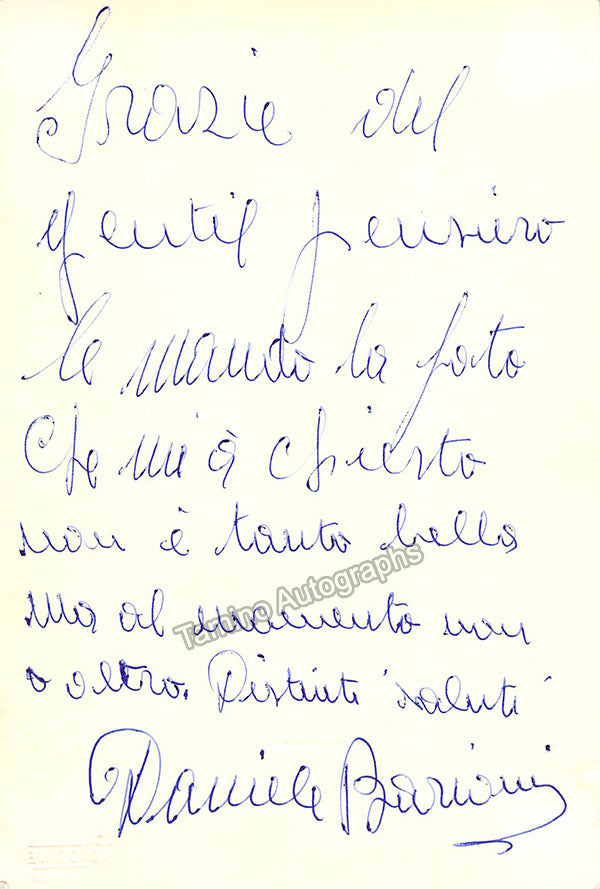 Grazie del
gentil pensiero
le mando la foto
Che mi à chiesto
non è tanto bella
ma al momento non
o altro. Distinti saluti
Daniele Barioni
Tamino Autographs